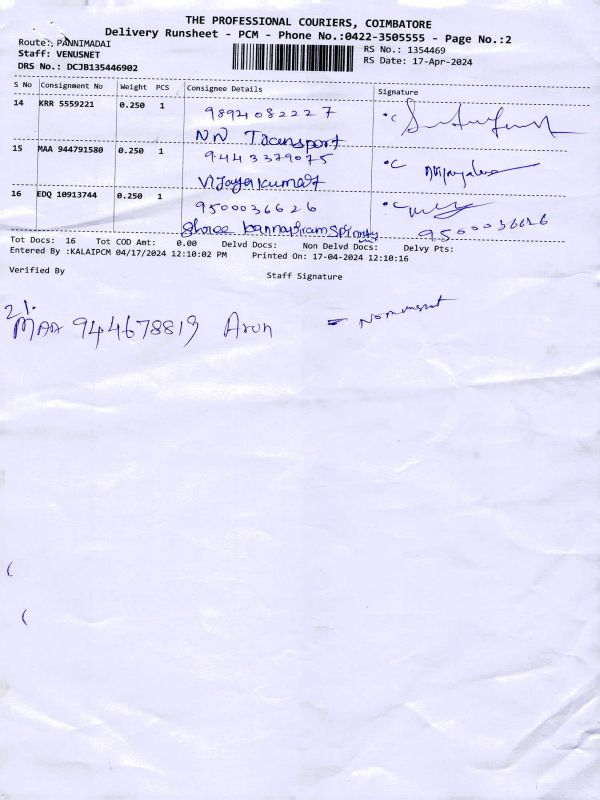 THE PROFESSIONAL COURIERS, COIMBATORE
Delivery Runsheet - PCM - Phone No.:0422-3505555 - Page No.:2
Route: PANNIMADAI
RS No.: 1354469
Staff: VENUSNET
RS Date: 17-Apr-2024
DRS No.: DCJB135446902
S No Consignment No Weight PCS Consignee Details Signature
14 KRR 5559221 0.250 1 9894082227
NN Transport
15 MAA 944791580 0.250 1 9443379075
Vijayakumar
16 EDQ 10913744 0.250 1 9500036626
Shree kannapiram 9500036626
Tot Docs: 16 Tot COD Amt: 0.00 Delvd Docs: Non Delvd Docs: Delvy Pts:
Entered By :KALAIPCM 04/17/2024 12:10:02 PM Printed On: 17-04-2024 12:10:16
Verified By
Staff Signature
MAA 944678819 Arun